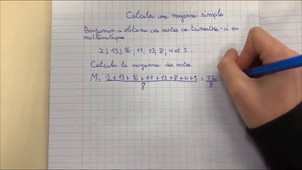 Calculer une moyenne simple
Benjamin a obtenu ces notes ce trimestre-ci en
mathématiques
2; 13; 16; 11; 13; 8; 4 et 3.
Calcule la moyenne des notes
M = 2+13+16+11+13+8+4+3 = 72
8 8